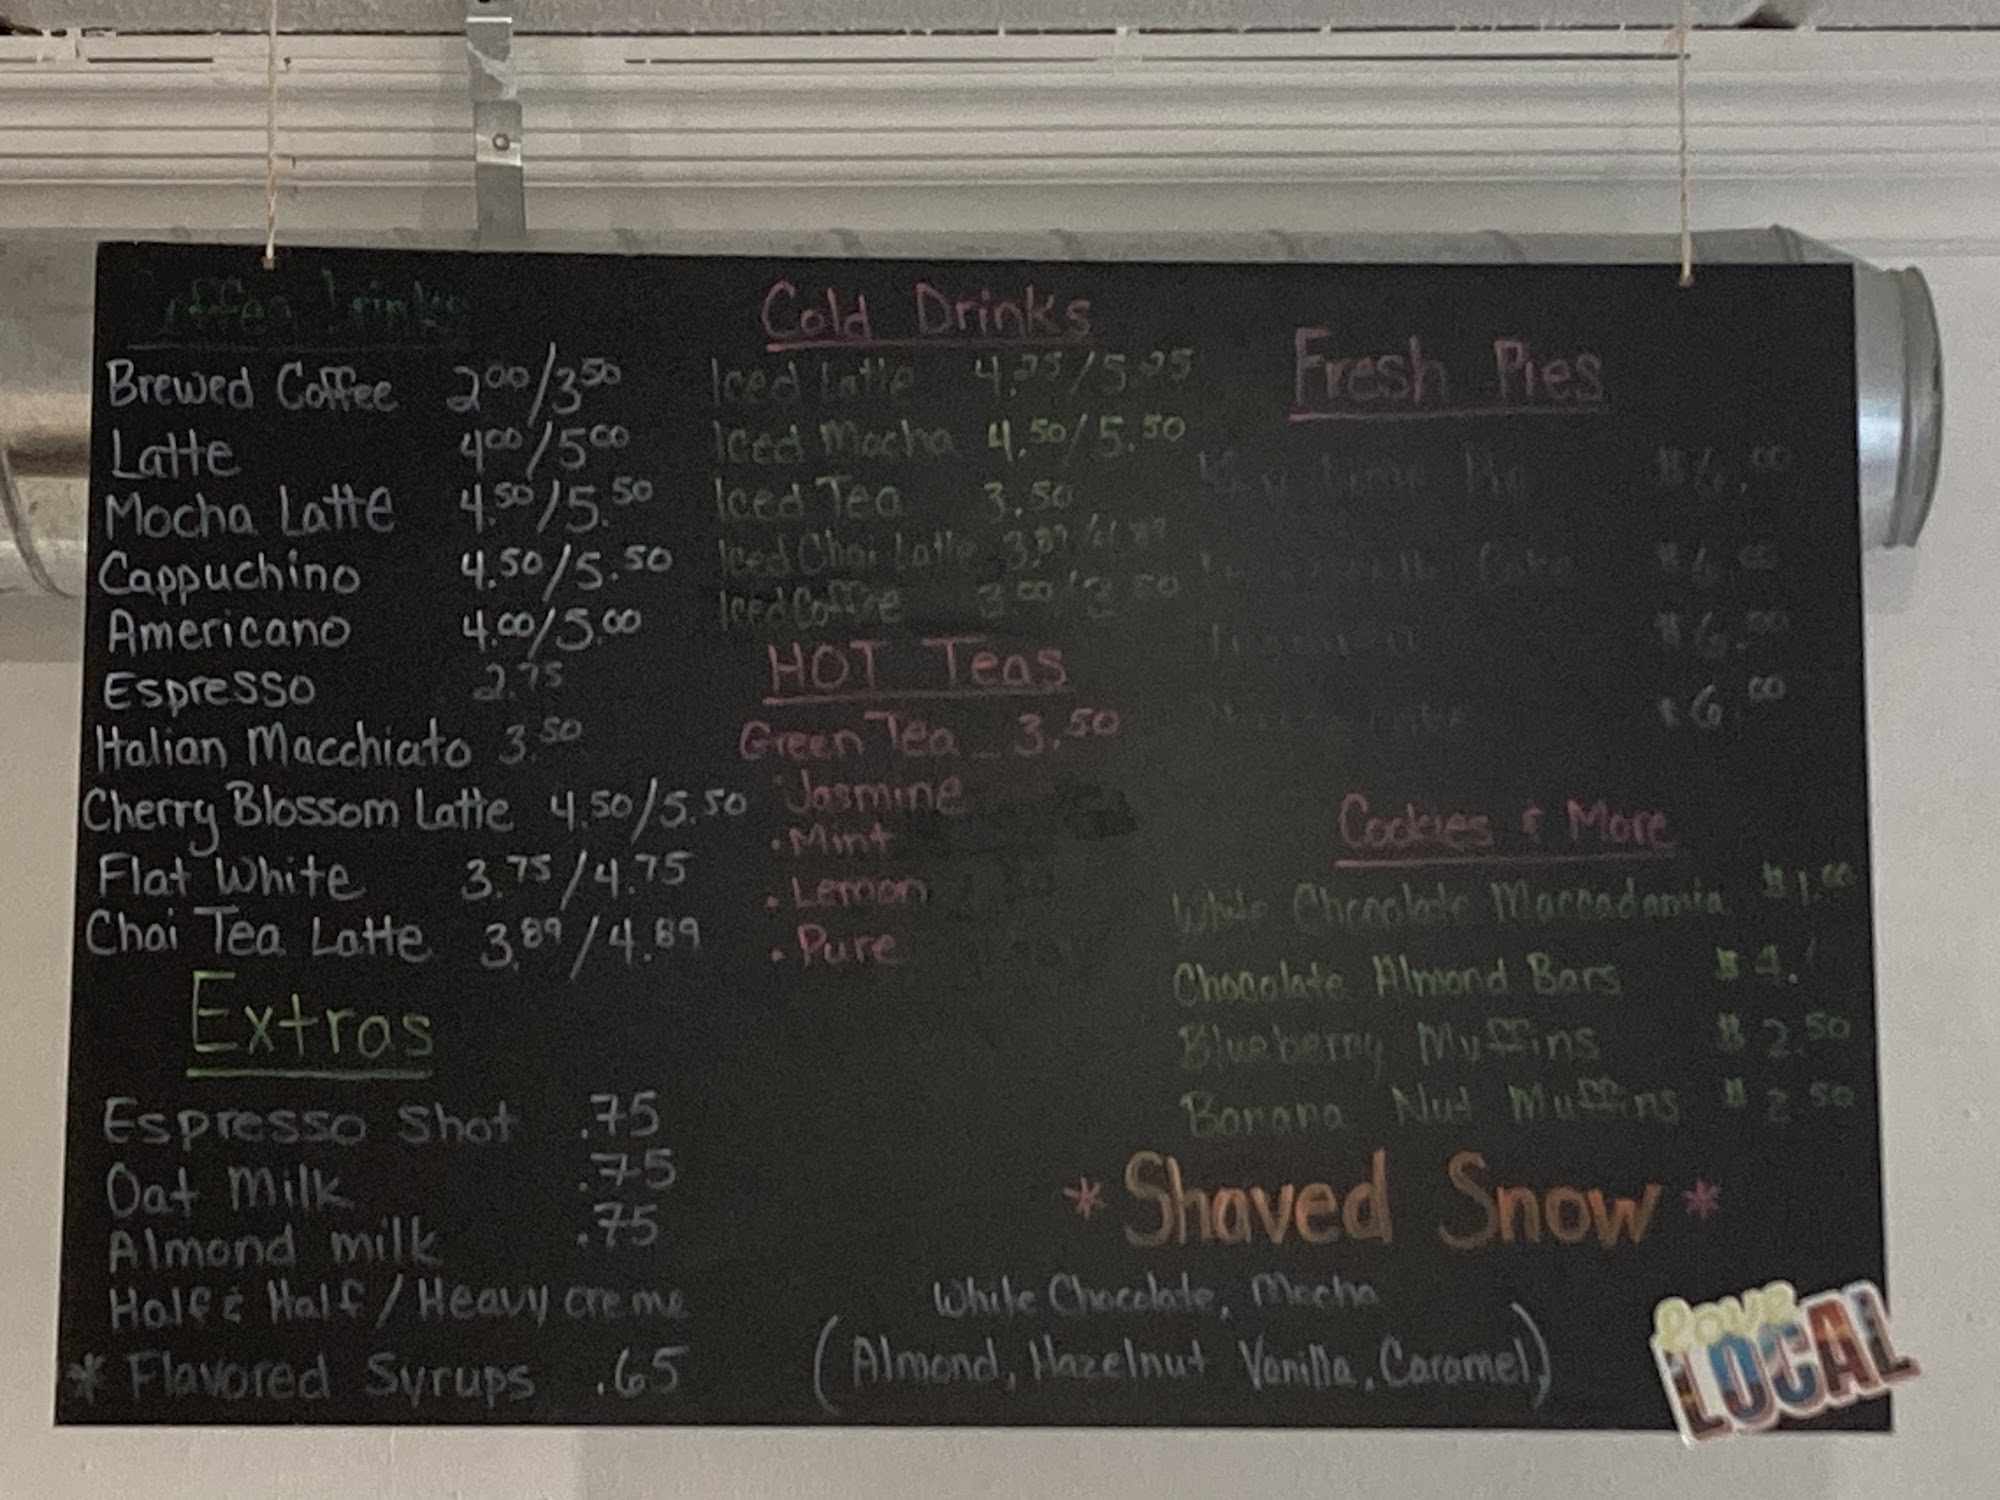 Coffee Drinks
Brewed Coffee 2.00/3.50
Latte 4.00/5.00
Mocha Latte 4.50/5.50
Cappuchino 4.50/5.50
Americano 4.00/5.00
Espresso 2.75
Italian Macchiato 3.50
Cherry Blossom Latte 4.50/5.50
Flat White 3.75/4.75
Chai Tea Latte 3.89/4.89
Extras
Espresso Shot .75
Oat Milk .75
Almond milk .75
Half & Half/Heavy creme
* Flavored Syrups .65
Cold Drinks
Iced Latte 4.25/5.25
Iced Mocha 4.50/5.50
Iced Tea 3.50
Iced Chai Latte 3.89/4.89
Iced Coffee 3.00/3.50
HOT Teas
Green Tea 3.50
Jasmine
• Mint
• Lemon
• Pure
Fresh Pies
Key Lime Pie $6.00
Cake $6.00
$6.00
$6.00
Cookies & More
White Chocolate Maccadamia $1.00
Chocolate Almond Bars $4.
Blueberry Muffins $2.50
Banana Nut Muffins $2.50
* Shaved Snow *
White Chocolate, Mocha
(Almond, Hazelnut Vanilla, Caramel)
love
LOCAL